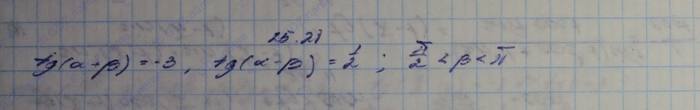 25.21
tg(α-β) = -3, tg(α-β) = 1/2 ; π/2 < β < π